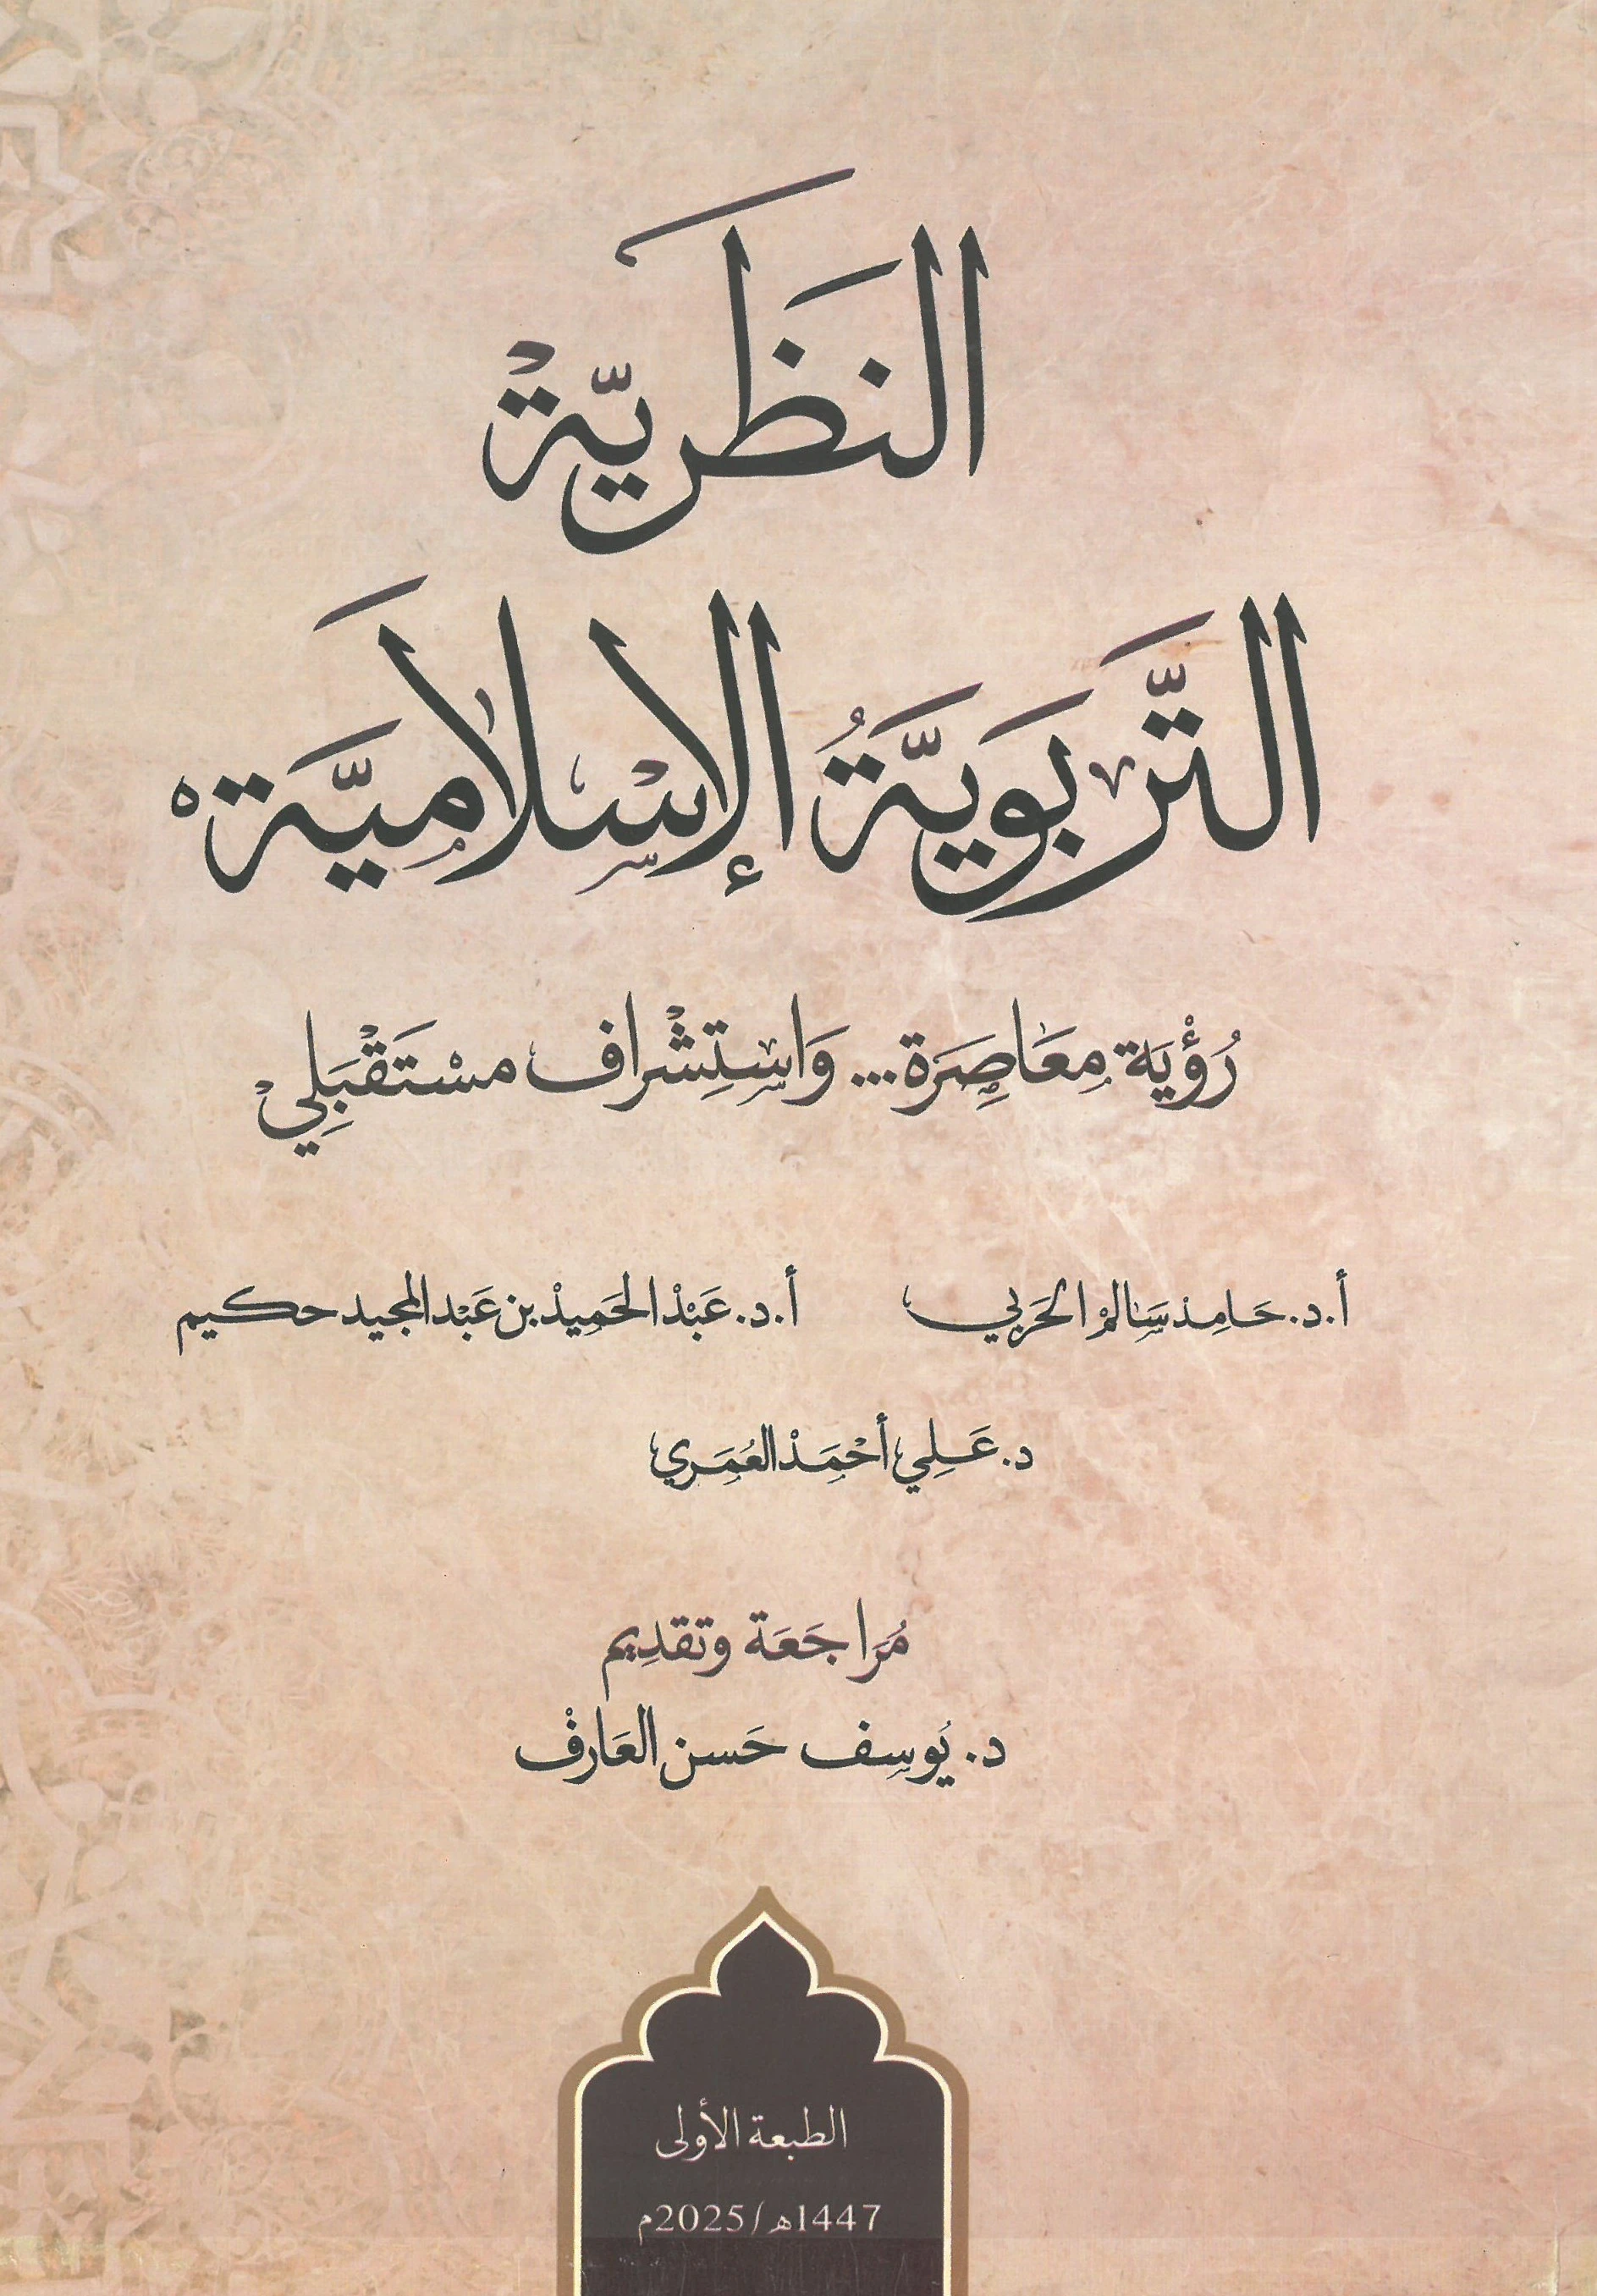 النظَريَّةْ
التَّربَوِيَّةُ الإسْلَامِيَّة
رُؤْيَة مِعَاصِرَة... وَاسْتِشْرَاف مسْتَقْبَلِيْ
أ.د. حَامِدْ سَالمْ الحَرْبي
أ.د. عَبْدْ الحَمِيدْ بن عَبْد المجيد حكيم
د. عَلِي أحْمَدْ العُمَري
مُرَاجَعَة وتقدِيم
د. يُوسِف حَسن العَارفْ
الطبعة الأولى
1447هـ/2025م